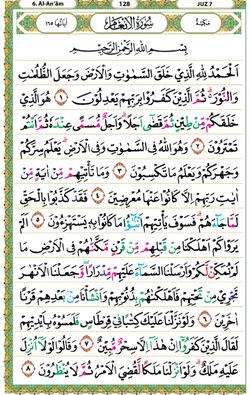 6. Al-An'ām 128 JUZ 7
مَكِّيَّةٌ سُوْرَةُ الْاَنْعَامِ اٰيَاتُهَا ١٦٥
بِسْمِ اللّٰهِ الرَّحْمٰنِ الرَّحِيْمِ
اَلْحَمْدُ لِلّٰهِ الَّذِيْ خَلَقَ السَّمٰوٰتِ وَالْاَرْضَ وَجَعَلَ الظُّلُمٰتِ
وَالنُّوْرَ ثُمَّ الَّذِيْنَ كَفَرُوْا بِرَبِّهِمْ يَعْدِلُوْنَ ١ هُوَ الَّذِيْ
خَلَقَكُمْ مِّنْ طِيْنٍ ثُمَّ قَضٰٓى اَجَلًا وَاَجَلٌ مُّسَمًّى عِنْدَهٗ ثُمَّ اَنْتُمْ
تَمْتَرُوْنَ ٢ وَهُوَ اللّٰهُ فِى السَّمٰوٰتِ وَفِى الْاَرْضِ يَعْلَمُ سِرَّكُمْ
وَجَهْرَكُمْ وَيَعْلَمُ مَا تَكْسِبُوْنَ ٣ وَمَا تَأْتِيْهِمْ مِّنْ اٰيَةٍ مِّنْ
اٰيٰتِ رَبِّهِمْ اِلَّا كَانُوْا عَنْهَا مُعْرِضِيْنَ ٤ فَقَدْ كَذَّبُوْا بِالْحَقِّ
لَمَّا جَآءَهُمْ فَسَوْفَ يَأْتِيْهِمْ اَنْۢبٰٓؤُا مَا كَانُوْا بِهٖ يَسْتَهْزِءُوْنَ ٥ اَلَمْ
يَرَوْا كَمْ اَهْلَكْنَا مِنْ قَبْلِهِمْ مِّنْ قَرْنٍ مَّكَّنّٰهُمْ فِى الْاَرْضِ مَا
لَمْ نُمَكِّنْ لَّكُمْ وَاَرْسَلْنَا السَّمَآءَ عَلَيْهِمْ مِّدْرَارًا وَّجَعَلْنَا الْاَنْهٰرَ
تَجْرِيْ مِنْ تَحْتِهِمْ فَاَهْلَكْنٰهُمْ بِذُنُوْبِهِمْ وَاَنْشَأْنَا مِنْۢ بَعْدِهِمْ قَرْنًا
اٰخَرِيْنَ ٦ وَلَوْ نَزَّلْنَا عَلَيْكَ كِتٰبًا فِيْ قِرْطَاسٍ فَلَمَسُوْهُ بِاَيْدِيْهِمْ
لَقَالَ الَّذِيْنَ كَفَرُوْٓا اِنْ هٰذَآ اِلَّا سِحْرٌ مُّبِيْنٌ ٧ وَقَالُوْا لَوْلَآ اُنْزِلَ
عَلَيْهِ مَلَكٌ وَلَوْ اَنْزَلْنَا مَلَكًا لَّقُضِيَ الْاَمْرُ ثُمَّ لَا يُنْظَرُوْنَ ٨